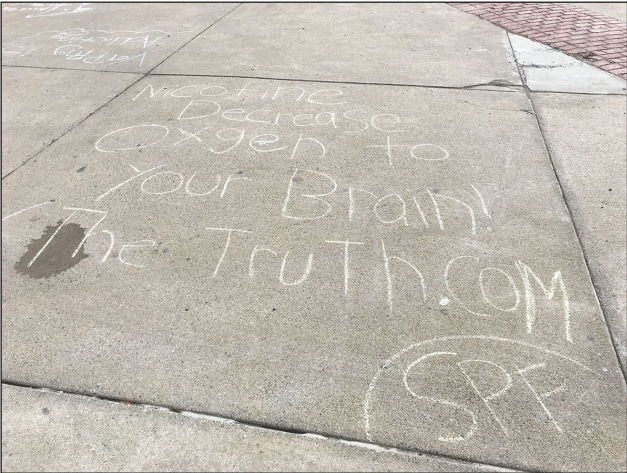 Nicotine
Decrease
Oxgen to
Your Brain!
The TruTh.COM
SPF